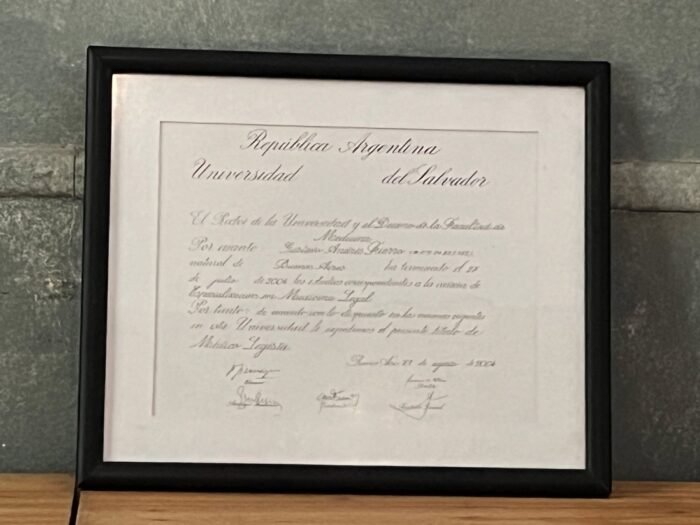 República Argentina
Universidad del Salvador
El Rector de la Universidad y el Decano de la Facultad de
Medicina
Por cuanto Andrés Fierro
natural de Buenos Aires ha terminado el 28
de julio de 2004 los estudios correspondientes a la carrera de
Especialización en Medicina Legal
Por tanto: de acuerdo con lo dispuesto en las normas vigentes
en esta Universidad le expedimos el presente título de
Médico Legista
Buenos Aires, de agosto de 2004